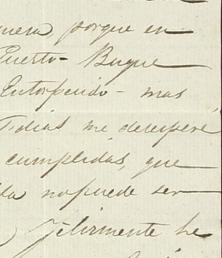 nera porque en
Puerto-Buque
Entorpecido - mas
dias me desesperé
cumplidas, que
da nopuede ser
) Felizmente he